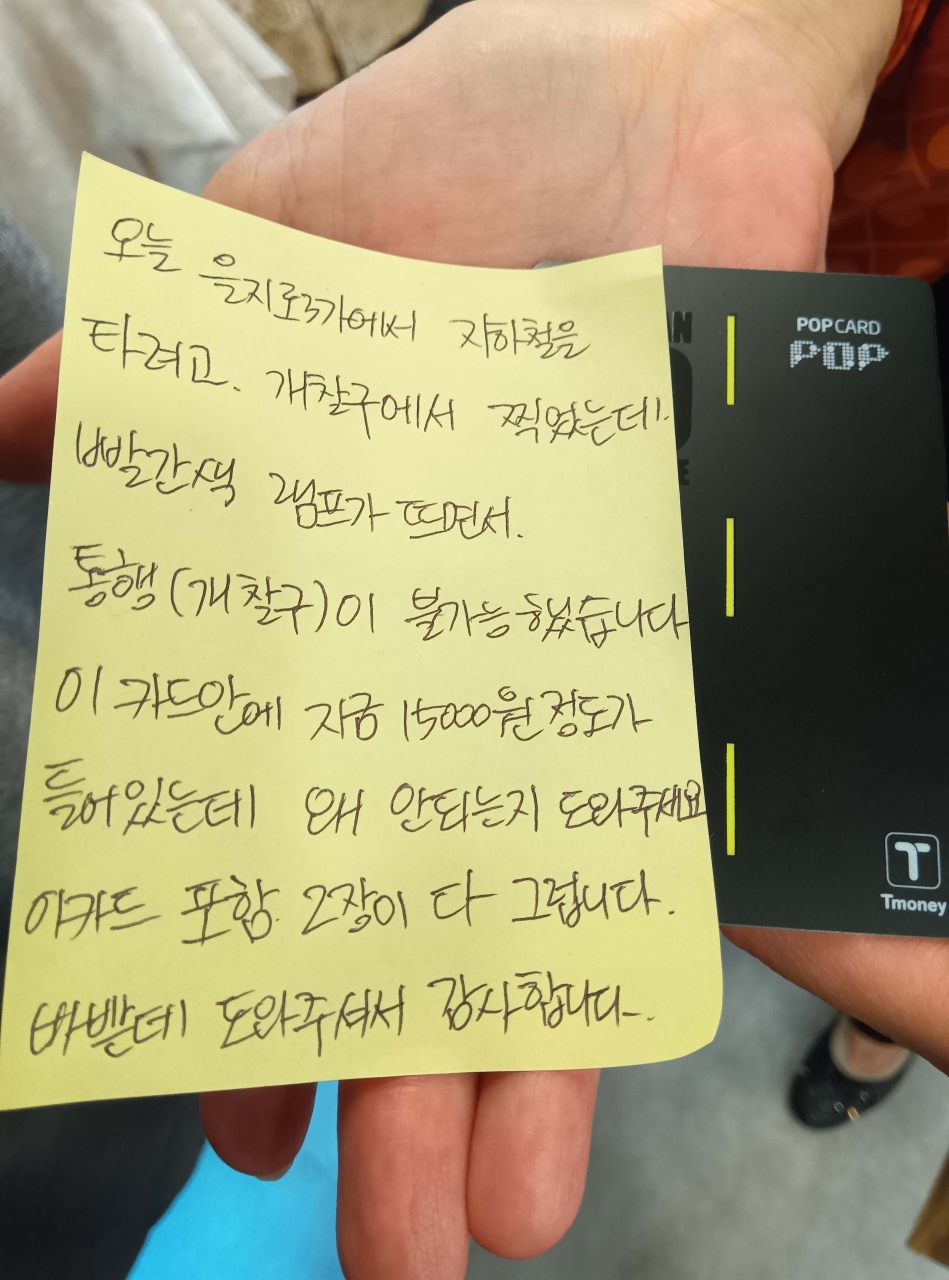 오늘 을지로3가에서 지하철을
타려고. 개찰구에서 찍었는데.
빨간색 램프가 뜨면서.
통행(개찰구)이 불가능했습니다
이 카드안에 지금 15000원정도가
들어있는데 왜 안되는지 도와주세요
이카드 포함 2장이 다 그럽니다.
바쁠데 도와주셔서 감사합니다.
AN
E
POP CARD
POP
T
Tmoney